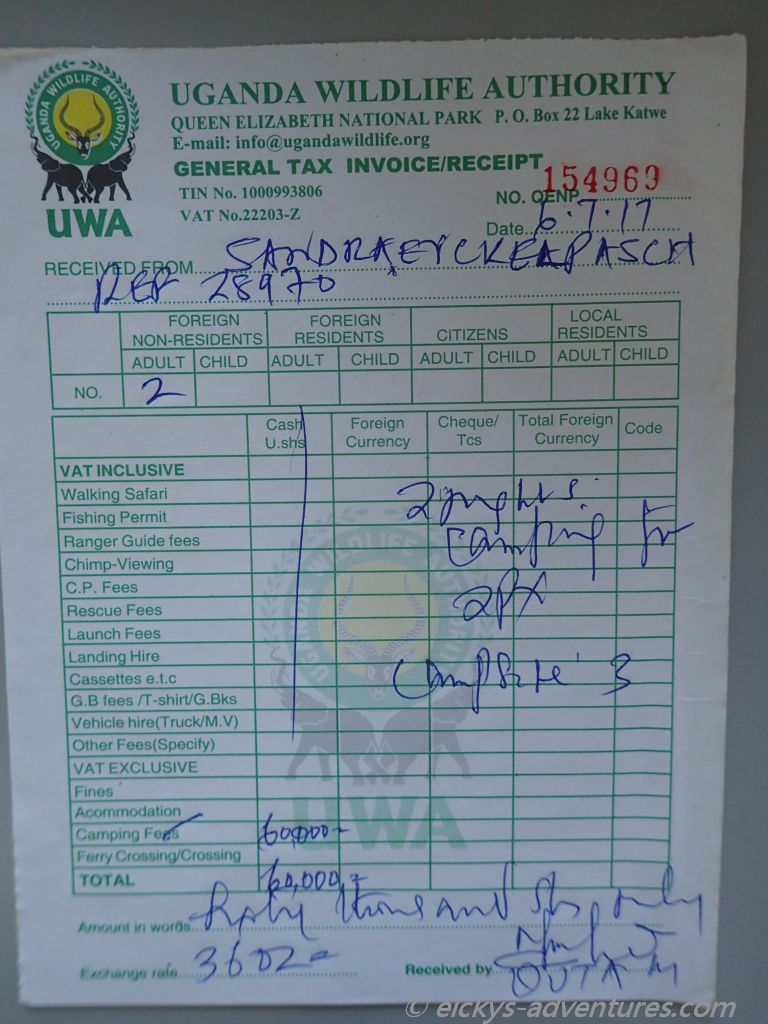 UGANDA WILDLIFE AUTHORITY
UWA
UGANDA WILDLIFE AUTHORITY
QUEEN ELIZABETH NATIONAL PARK P. O. Box 22 Lake Katwe
E-mail: info@ugandawildlife.org
GENERAL TAX INVOICE/RECEIPT
TIN No. 1000993806
NO. QENP 154969
VAT No.22203-Z
Date 6.7.17
RECEIVED FROM SANDRA
REF 28970
FOREIGN NON-RESIDENTS FOREIGN RESIDENTS CITIZENS LOCAL RESIDENTS
ADULT CHILD ADULT CHILD ADULT CHILD ADULT CHILD
NO. 2
Cash U.shs Foreign Currency Cheque/ Tcs Total Foreign Currency Code
VAT INCLUSIVE
Walking Safari
2 nights
Fishing Permit
Ranger Guide fees
camping for
Chimp-Viewing
C.P. Fees
2PX
Rescue Fees
Launch Fees
Landing Hire
Cassettes e.t.c
Campsite 3
G.B fees /T-shirt/G.Bks
Vehicle hire(Truck/M.V)
Other Fees(Specify)
VAT EXCLUSIVE
Fines
Acommodation
Camping Fees 60,000=
Ferry Crossing/Crossing
TOTAL 60,000=
Amount in words thousand shs only
Exchange rate 3602=
Received by
UWA
© eickys-adventures.com